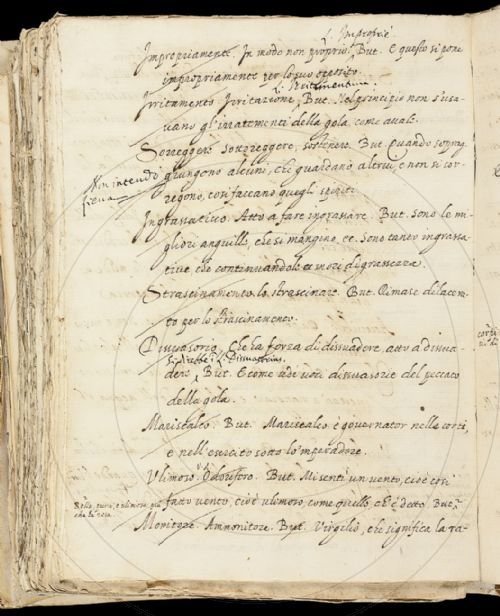 L. Impropriè
Impropriamente. In modo non proprio. But. E questo si pone
impropriamente per lo suo opposito.
L. Irritamentum.
Irritamento Irritazione, But. Nel principio non s'usa-
vano gl'irritamenti della gola, come avale.
Soreggere sottoreggere, sostenere. But. Quando sopprag-
giungono alcuni, che guardano altrui, e non si cor-
Non intendo
regono, così faccano quegli spiriti
Ingrassativo. Atto a fare ingrassare. But. Sono le mi-
gliori anguille, che si mangino, ec. Sono tanto ingrassa-
tive che continuandole
Strascinamento. lo strascinare. But. Rimase
to per lo strascinamento.
Dissuasorio, che ha forza di dissuadere, atto a dissua-
L. Dissuasorius.
dere, But. E come ode voci dissuasorie del peccato
della gola.
Mariscalco. But. Mariscalco è governator nella corte,
e nell'esercito sotto lo imperadore.
Ulimoso. Odorifero. But. Mi sentì un vento, cioè così
fatto vento, cioè ulimoso, come quello, ch'è detto
Monitore. Ammonitore. But. Virgilio, che significa la ra-